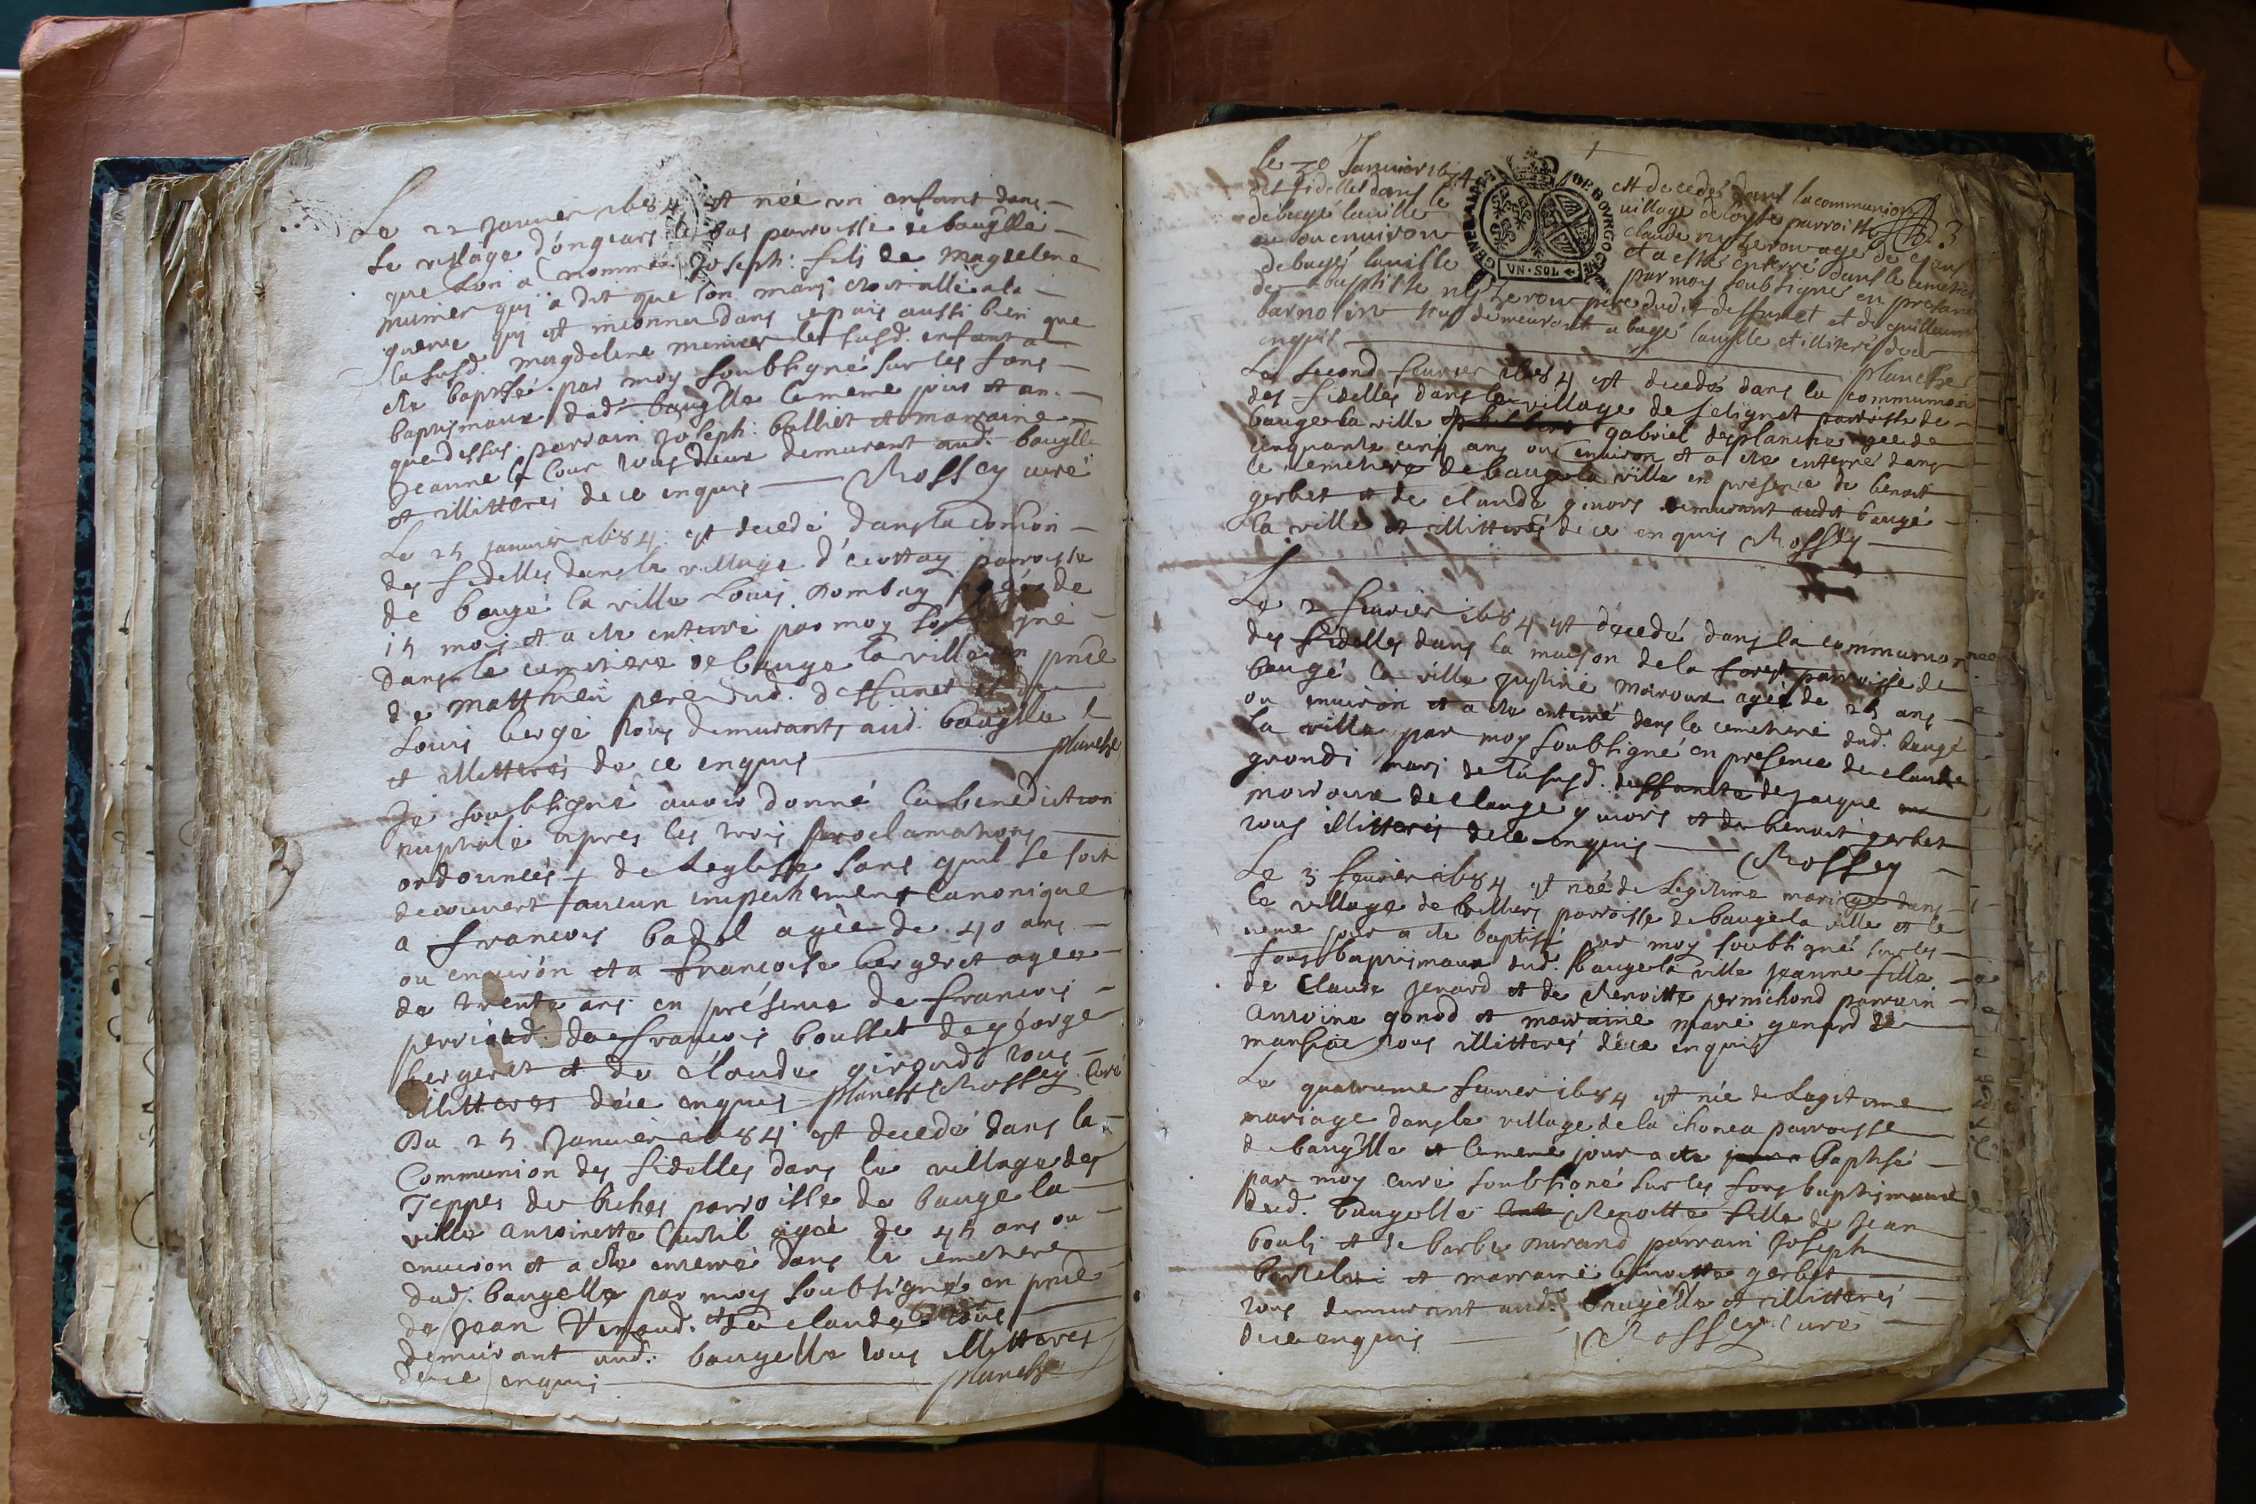 Le 22 Janvier 1684 est née un enfant dans
le village d'ongears le bas parroisse de baugella
que lon a nommé Joseph: fils de Magdelene
munier qui a dit que son mari estoit allé a la
guerre qui est inconnu dans ce pais aussi bien que
la susd. magdelene munier led susd. enfant a
este baptisé par moy soubsigné sur les fons
baptismaux dud. baugella le meme jour et an
que dessus parrain Joseph: balliet et marraine
Jeanne la Cour tous deux demurant aud. baugella
et illitterés de ce enquis Rossey curé
Le 25 Janvier 1684 est decedé dans la comōn
des fidelles dans le village d' parroisse
de baugé la ville Louis Dombey agée de
15 mois et a este enterré par moy soubsigné
dans le cemetiere de bauge la ville en pnce
de Matthieu pere dud. deffunct et de
Louis bergé tous demurants aud. baugella
et illitterés de ce enquis planche
Je soubsigné avoir donné la benediction
nuptiale apres les trois proclamations
ordonnées de Leglisse sans quil se soit
decouvert aucun impechement Canonique
a francois badol agée de 40 ans
ou environ et a francoise bergeret agee
de trente ans en présence de francois
perriaud. de francois boullet de george
bergeret et de claude girondo tous
illitteres dece enquis planche Rossey Curé
Du 25 Janvier 1684 est decedé dans la
Communion des fidelles dans le village des
Teppes de biches parroisse de bauge la
ville Antoinette Curtil agée de 45 ans ou
environ et a este enterré dans le cemetiere
dud. baugella par moy soubsigné en pnce
de Jean Vinaud. et de claude tous
demurant aud. baugella tous illitteres
dece enquis planche
le 30 Janvier 1684 est decedé dans la communion 3
des fidelles dans le village de parroisse
de bagé la ville claude agé de ans
ou environ et a esté enterré dans le cemetiere
de bagé la ville par moy soubsigné en presance
de baptiste pere dudit deffunct et de guillaume
barnolin tous demeurant a bagé laville et illiterés dece
enquis planche
GENERALITE DE BOVRGOGNE
VN SOL
Le second fevrier 1684 est decedé dans la communion
des fidelles dans le village de selignat parroisse de
bauge la ville gabriel desplanche agee de
cinquante cinq ans ou environ et a este enterré dans
le cemetiere de bauge la ville en presence de benoit
gerbet et de claude demurant audit baugé
la ville et illitterés de ce enquis Rossey
Le 2 fevrier 1684 est decedé dans la communion
des fidelles dans la maison de la forest parroisse de
baugé la ville Justine Moiroux agée de 25 ans
ou environ et a este enterré dans le cemetiere dud. baugé
la ville par moy soubsigné en presence de claude
grondi mari de la susd. deffuncte de Jacque
moiroux de et de benoit gerbet
tous illitterés dece enquis Rossey
Le 3 fevrier 1684 est neé de Legitime mariage dans
le village de villars parroisse de bauge la ville et le
meme jour a ete baptisé par moy soubsigné sur les
fons baptismaux dud. bauge la ville Jeanne fille
de Claude Jenard et de Benoitte pernichond parrain
Antoine gonod et marraine marie genard de
tous illitterés dece enquis
Le quatrieme fevrier 1684 est née de Legitime
mariage dans le village de la chonea parroisse
de baugella et le meme jour a ete baptisé
par moy curé soubsigné sur les fons baptismaux
dud. baugella Benoitte fille de Jean
bouli et de barbe Durand parrain Joseph
et marraine benoitte gerbet
tous demurant aud. baugella et illitterés
dece enquis Rossey curé